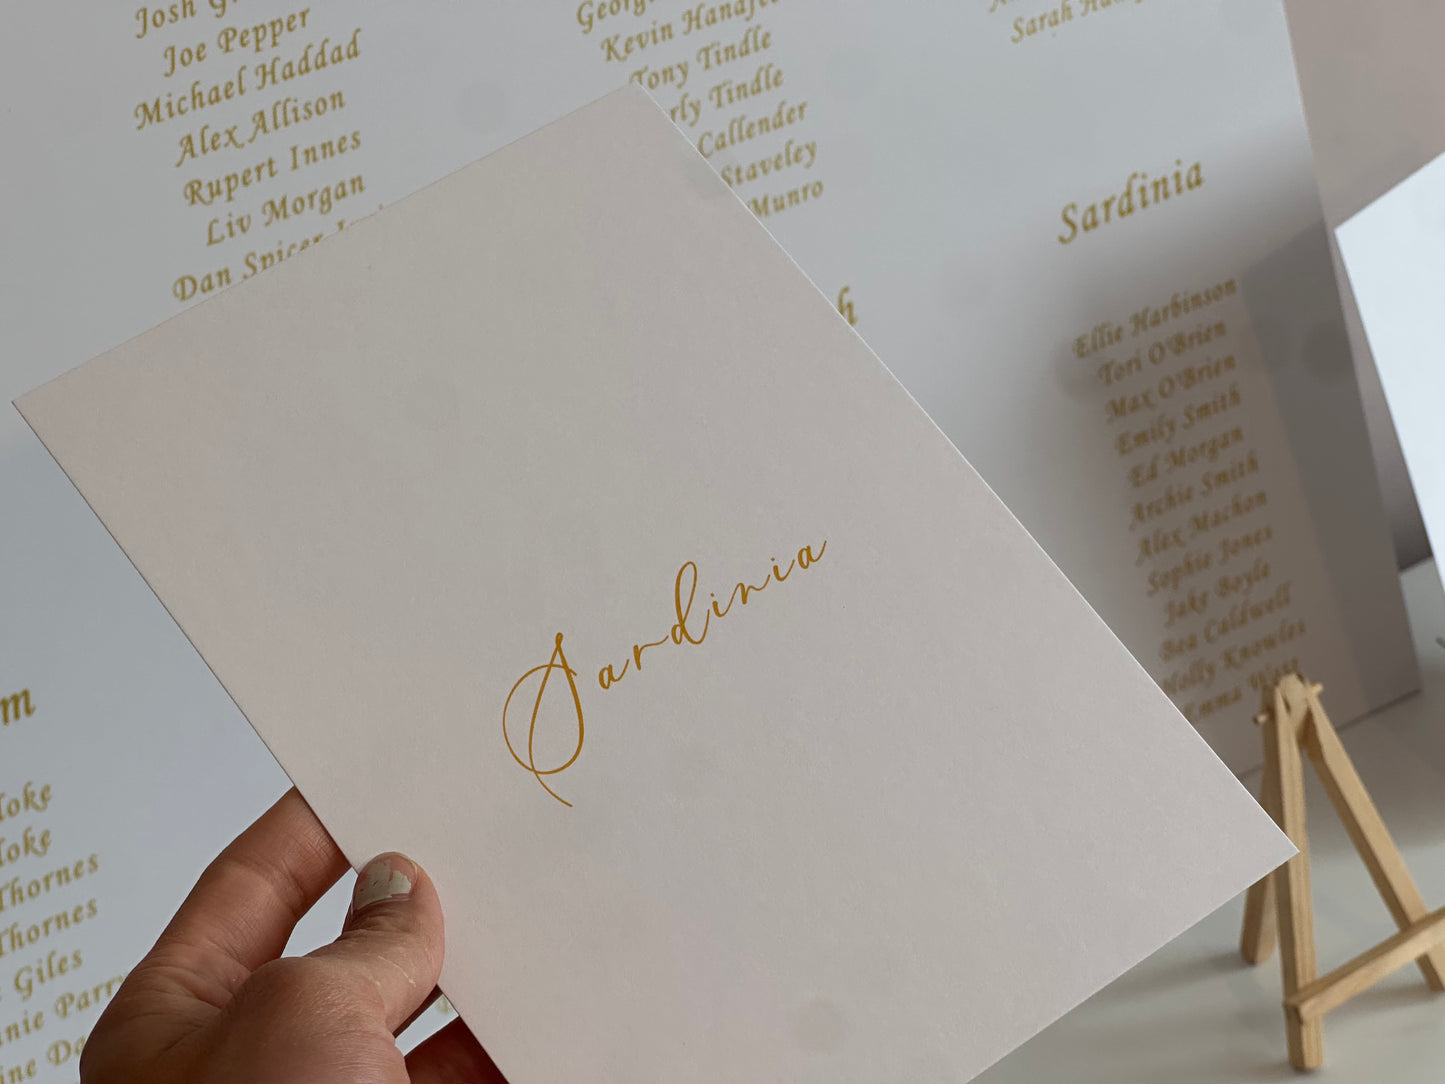 Josh
Joe Pepper
Michael Haddad
Alex Allison
Rupert Innes
Liv Morgan
Dan Spicer
Kevin
Tony Tindle
Tindle
Callender
Staveley
Munro
Sarah
Sardinia
Ellie Harbinson
Tori O'Brien
Max O'Brien
Emily Smith
Ed Morgan
Archie Smith
Alex Machon
Sophie Jones
Jake Boyle
Bea Caldwell
Holly Knowles
Emma
Sardinia
Thornes
Thornes
Giles